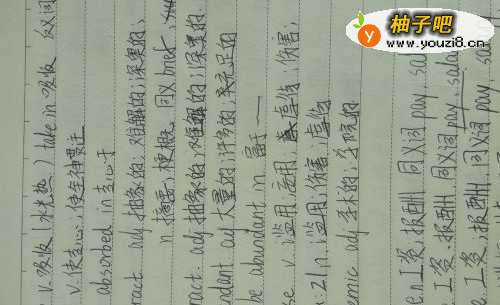 v. 吸收 (水、光、热) take in 吸收 反义词
v. 使专心; 使全神贯注
absorbed in 专心于
ract adj 抽象的; 难解的; 深奥的;
n 摘要; 梗概. 同义 brief,
ract. adj 抽象的; 难解的; 深奥的.
ndant ad 大量的; 许多的; 充足的
be abundant in 富于
se v 滥用; 伤害;
n. 滥用; 伤害;
emic adj 学术的; 学院的
e.n 工资, 报酬 同义词 pay, sal
工资, 报酬 同义词 pay, sala
工资, 报酬 同义词 pay, sala
柚子吧
www.youzi8.cn